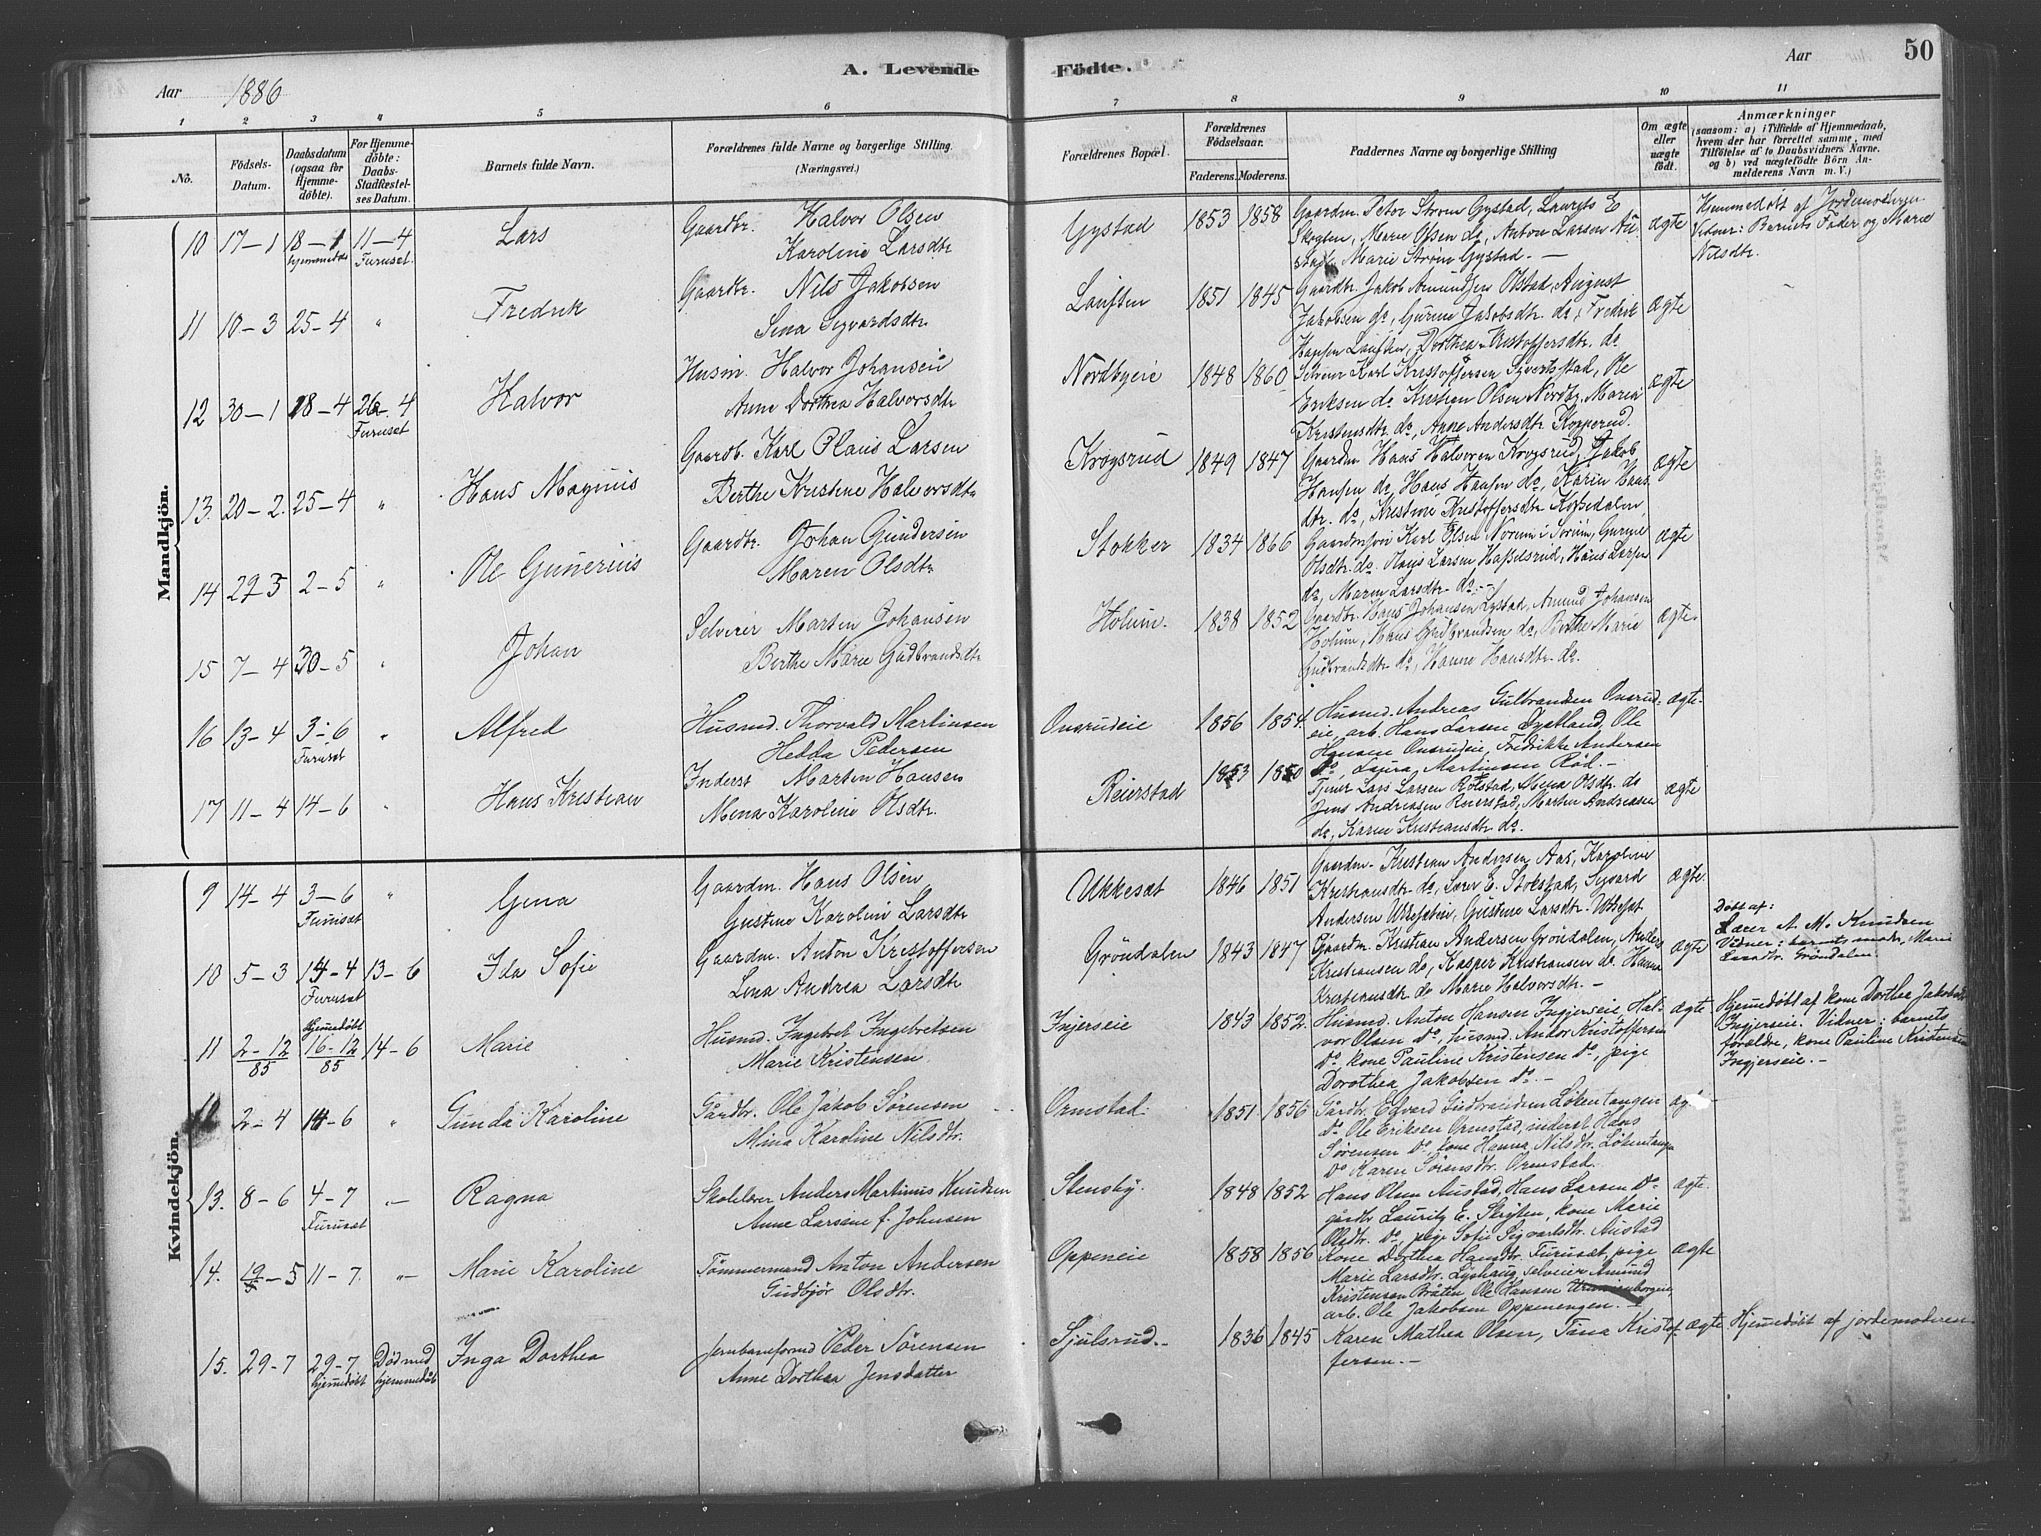 A. Levende Födte.
50
Aar 1886
Aar
1 2 3 4 5 6 7 8 9 10 11
No.
Födsels-Datum.
Daabsdatum (ogsaa for Hjemmedöbte).
For Hjemmedöbte: Daabs-Stadfæstelses Datum.
Barnets fulde Navn.
Forældrenes fulde Navne og borgerlige Stilling. (Næringsvei.)
Forældrenes Bopæl.
Forældrenes Födselsaar.
Faderens. Moderens.
Faddernes Navne og borgerlige Stilling
Om ægte eller uægte födt.
Anmærkninger (saasom: a) i Tilfælde af Hjemmedaab, hvem der har forrettet samme, med Tilföielse af to Daabsvidners Navne. og b) ved uægtefödte Börn Anmelderens Navn m. V.)
Mandkjön.
10 17-1 18-1 hjemmedøbt 11-4 Furuset. Lars
Gaardbr. Halvor Olsen
Karoline Larsdtr
Gystad 1853 1858
Gaardm. Peter Strøm Gystad, Laurits E
Skogten, Marie Olsen do, Anton Larsen Au
stad, Marie Strøm Gystad. —
ægte
Hjemmedøbt af Jordemoderen
Vidner: Barnets Fader og Marie
Nilsdtr.
11 10-3 25-4 " Fredrik
Gaardbr. Nils Jakobsen
Lina Sigvardsdtr
1851 1845
Gaardbr. Jakob Amundsen Olstad, August
Jakobsen do, Gurine Jakobsdtr. do, Fredrik
Hansen, Dorthea Kristoffersdtr. do
ægte
12 30-1 18-4 26-4 Furuset Halvor
Husm. Halvor Johansen
Anne Dorthea Halvorsdtr
Nordbyeie 1848 1860
Selveier Karl Kristoffersen Syvertsstad, Ole
Eriksen do Kristian Olsen Nordby, Maria
Kristensdtr. do, Anne Andersdtr Kopperud.
ægte
13. 20-2. 25-4 " Hans Magnus
Gaardb. Karl Olaus Larsen
Berthe Kristine Halvorsdtr
Krogsrud 1849 1847
Gaardm Hans Halvorsen Krogsrud, Jakob
Hansen do, Hans Hansen do, Karin Hans
dtr. do, Kristine Kristoffersdtr
ægte
14 29-3 2-5 " Ole Gunerius
Gaardbr. Johan Gundersen
Maren Olsdtr
Stokker 1834 1866
Karl Olsen Norum i Sørum, Gurine
Olsdtr. do. Olaus Larsen Hasselsrud, Hans Larsen
do, Maren Larsdtr do. -
ægte
15 7-4 30-5 " Johan
Selveier Martin Johansen
Berthe Marie Gudbrandsdtr
Holum. 1838 1852
Gaardbr. Hans Johansen Lystad, Amund Johansen
Holum, Hans Gudbrandsen do, Berthe Marie
Gudbrandsdtr do, Hanne Hansdtr do.
ægte.
16 13-4 3-6 Furuset " Alfred
Husmd. Thorvald Martinsen
Hedda Pedersen
Onsrudeie 1856 1854.
Husmd. Andreas Gulbrandsen Onsrud-
eie, arb. Hans Larsen Jystland, Ole
Hansen Onsrudeie, Fredrikke Andersen
do, Laura Martinsen Rød. —
ægte.
17 11-4 14-6 " Hans Kristian
Inderst Martin Hansen
Mina Karoline Olsdtr.
Reierstad 1853 1850
Tjener Lars Larsen Rotstad, Mina Olsdtr. do
Jens Andreasen Reierstad, Martin Andreasen
do, Karen Kristiansdtr do.
ægte
Kvindekjön.
9 14-4 3-6 Furuset " Gina
Gaardm. Hans Olsen
Gustine Karoline Larsdtr
Ukkesæt 1846 1851
Gaardm. Kristian Andersen Aas, Karoline
Kristiansdtr do, Søren E. Stokstad, Sigvard
Andersen, Gustine Larsdtr.
ægte.
10 5-3 14-4 Furuset 13-6 Ida Sofie
Gaardm. Anton Kristoffersen
Lina Andrea Larsdtr
Grøndalen 1843 1847
Gaardm. Kristian Andersen Grøndalen, Anders
Kristiansen do, Kasper Kristiansen do. Hanna
Kristiansdtr do Marie Halvorsdtr. —
ægte
Døbt af:
Lærer A. M. Knudsen
Vidner: barnets moder, Marie
Larsdtr. Grøndalen.
11 2-12/85 Hjemmedøbt 16-12/85 14-6 Marie
Husmd. Ingebret Ingebretsen
Marie Kristensen
Injerseie 1843 1852.
Husmd. Anton Hansen Ingjerseie, Hal-
vor Olsen do, husmd. Andor Kristoffersen
do, kone Pauline Kristensen do, pige
Dorothea Jakobsen do. —
ægte
Hjemmedøbt af kone Dorthea Jakobsd.
Ingjerseie. Vidner: barnets
forældre, kone Pauline Kristensen
Ingjerseie. —
12 2-4 14-6 " Gunda Karoline
Gårdbr. Ole Jakob Sørensen
Mina Karoline Nilsdtr.
Ormstad. 1851 1856
Gårdbr. Edvard Gudbrandsen Løkentangen
do Ole Eriksen Ormstad, inderst Hans
Sørensen do, kone Hanna Nilsdtr. Løkentangen
do Karen Sørensdtr. Ormstad.
13. 8-6 4-7 Furuset "- Ragna
Skolelærer Anders Martinus Knudsen
Anne Larsine f. Johnsen
Stensby. 1848 1852
Hans Olsen Austad, Hans Larsen do
gårdbr Lauritz E. Skogten, kone Marie
Olsdtr. do, pige Sofie Sigvarlsdtr. Austad
ægte.
14. 19-5 11-7. "- Marie Karoline
Tømmermand Anton Andersen
Gudbjør Olsdtr.
Oppeneie 1858 1856
Kone Dorthea Hansdtr. Furuset, pige
Marie Larsdtr. Lyshaug, selveier Amund
Kristensen Bråten Ole Hansen
arb. Ole Jakobsen Oppenengen. —
ægte
15. 29-7 29-7 hjemmedøbt Død med hjemmedåb Inga Dorthea
Jernbaneformd Peder Sørensen
Anne Dorthea Jensdatter
Sjulsrud. 1836 1845
Karen Mathea Olsen, Tina Kristof-
fersen. —
ægte
Hjemmedøbt af jordemoderen